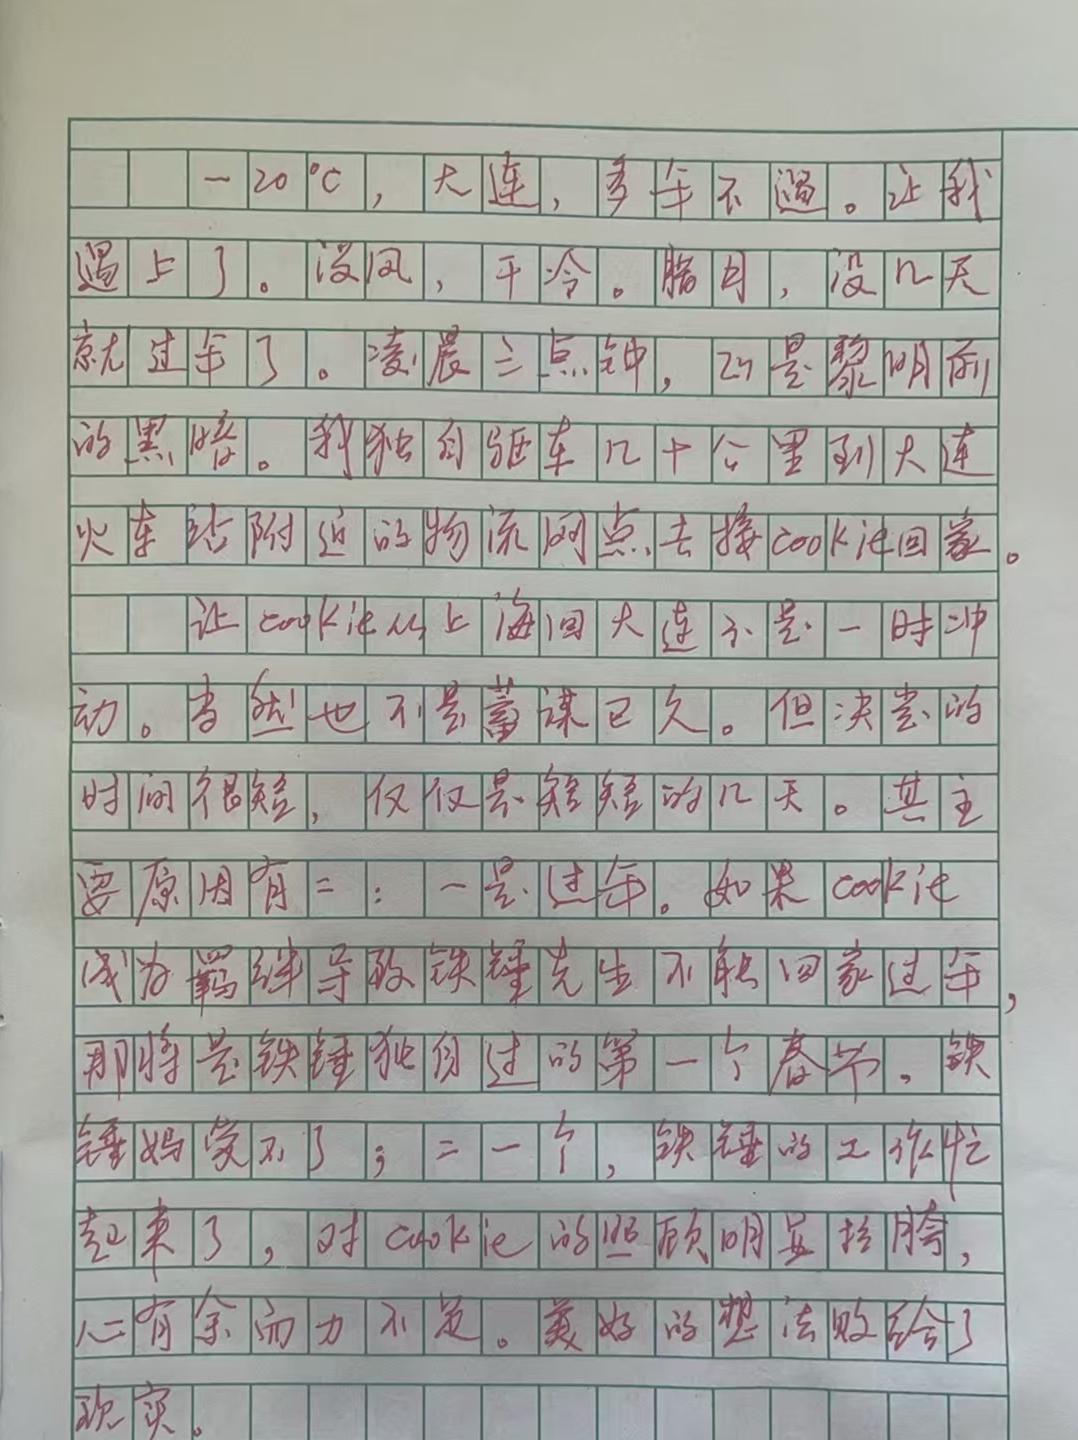 -20℃,大连,多年不遇。让我
遇上了。没风,干冷。腊月,没几天
就过年了。凌晨三点钟,正是黎明前
的黑暗。我独自驱车几十公里到大连
火车站附近的物流网点去接cookie回家。
让cookie从上海回大连不是一时冲
动。当然也不是蓄谋已久。但决定的
时间很短,仅仅是短短的几天。其主
要原因有二:一是过年。如果cookie
成为羁绊导致铁锤先生不能回家过年,
那将是铁锤独自过的第一个春节。铁
锤妈受不了;二一个,铁锤的工作忙
起来了,对cookie的照顾明显拉胯,
心有余而力不足。美好的想法败给了
现实。